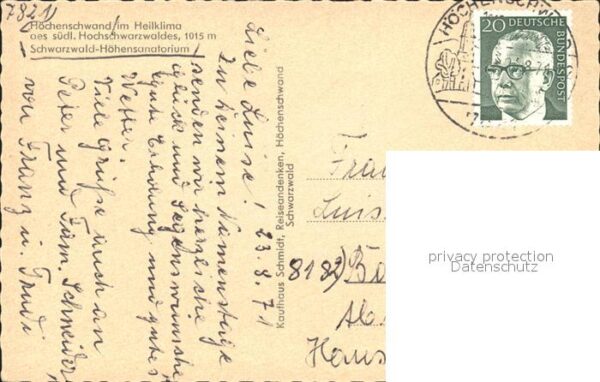 7821)
Höchenschwand im Heilklima
des südl. Hochschwarzwaldes, 1015 m
Schwarzwald-Höhensanatorium
23.8.71
Liebe Luise!
Zu Deinem Namenstage
senden wir herzliche
Glück und Segenswünsche,
gute Erholung und gutes
Wetter.
Viele Grüße auch an
Peter und Fam. Schneider
von Franz u. Trudi
Kaufhaus Schmidt, Reiseandenken, Höchenschwand
Schwarzwald
HÖCHENSCHW
20 DEUTSCHE
BUNDESPOST
Frau
Luis
8182) Ba
Haus
privacy protection
Datenschutz